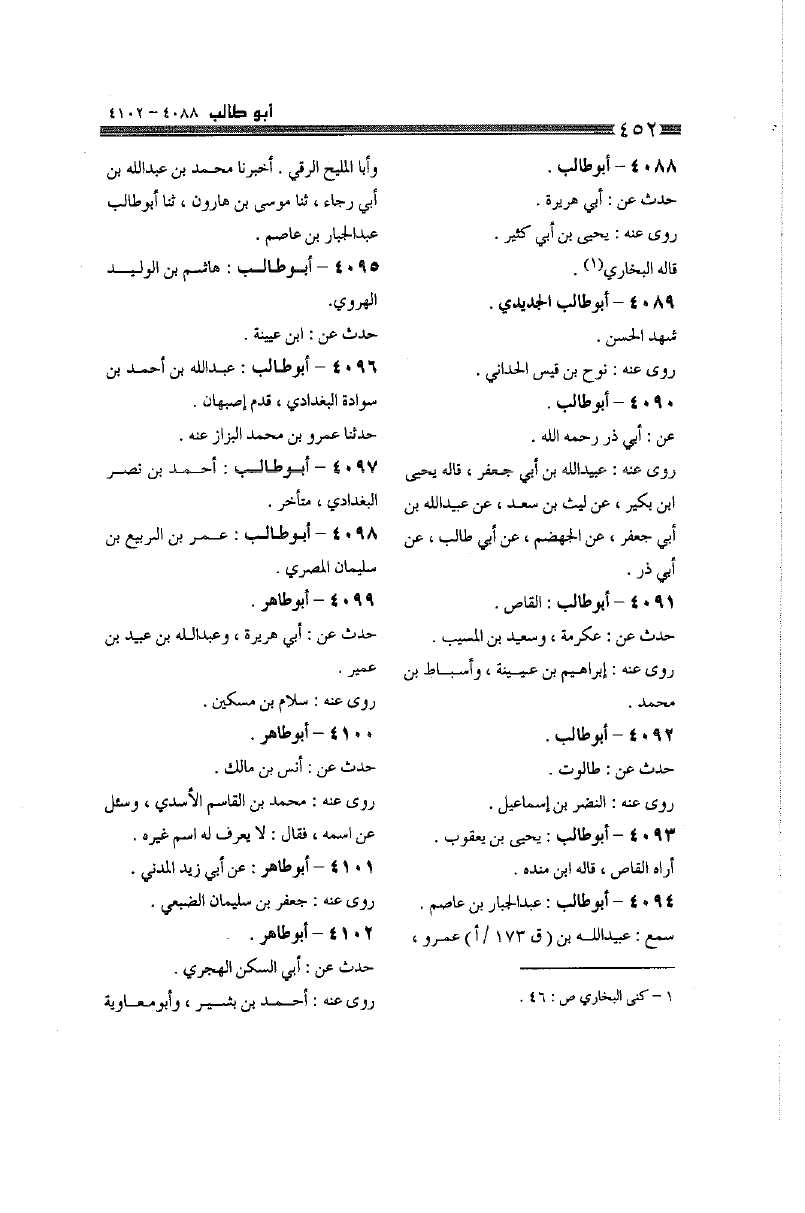 أبو طالب ٤٠٨٨ – ٤١٠٢
٤٥٢
٤٠٨٨ – أبوطالب .
حدث عن : أبي هريرة .
روى عنه : يحيى بن أبي كثير .
قاله البخاري(١) .
٤٠٨٩ – أبوطالب الجديدي .
شهد الحسن .
روى عنه : نوح بن قيس الحداني .
٤٠٩٠ – أبوطالب .
عن : أبي ذر رحمه الله .
روى عنه : عبيدالله بن أبي جعفر ، قاله يحيى
ابن بكير ، عن ليث بن سعد ، عن عبيدالله بن
أبي جعفر ، عن الجهضم ، عن أبي طالب ، عن
أبي ذر .
٤٠٩١ – أبوطالب : القاص .
حدث عن : عكرمة ، وسعيد بن المسيب .
روى عنه : إبراهيم بن عيينة ، وأسباط بن
محمد .
٤٠٩٢ – أبوطالب .
حدث عن : طالوت .
روى عنه : النضر بن إسماعيل .
٤٠٩٣ – أبوطالب : يحيى بن يعقوب .
أراه القاص ، قاله ابن منده .
٤٠٩٤ – أبوطالب : عبدالجبار بن عاصم .
سمع : عبيدالله بن ( ق ١٧٣ / أ ) عمرو ،
١ – كنى البخاري ص : ٤٦ .
وأبا المليح الرقي . أخبرنا محمد بن عبدالله بن
أبي رجاء ، ثنا موسى بن هارون ، ثنا أبوطالب
عبدالجبار بن عاصم .
٤٠٩٥ – أبوطالب : هاشم بن الوليد
الهروي.
حدث عن : ابن عيينة .
٤٠٩٦ – أبوطالب : عبدالله بن أحمد بن
سوادة البغدادي ، قدم إصبهان .
حدثنا عمرو بن محمد البزاز عنه .
٤٠٩٧ – أبوطالب : أحمد بن نصر
البغدادي ، متأخر .
٤٠٩٨ – أبوطالب : عمر بن الربيع بن
سليمان المصري .
٤٠٩٩ – أبوطاهر .
حدث عن : أبي هريرة ، وعبدالله بن عبيد بن
عمير .
روى عنه : سلام بن مسكين .
٤١٠٠ – أبوطاهر .
حدث عن : أنس بن مالك .
روى عنه : محمد بن القاسم الأسدي ، وسئل
عن اسمه ، فقال : لا يعرف له اسم غيره .
٤١٠١ – أبوطاهر : عن أبي زيد المدني .
روى عنه : جعفر بن سليمان الضبعي .
٤١٠٢ – أبوطاهر .
حدث عن : أبي السكن الهجري .
روى عنه : أحمد بن بشير ، وأبومعاوية